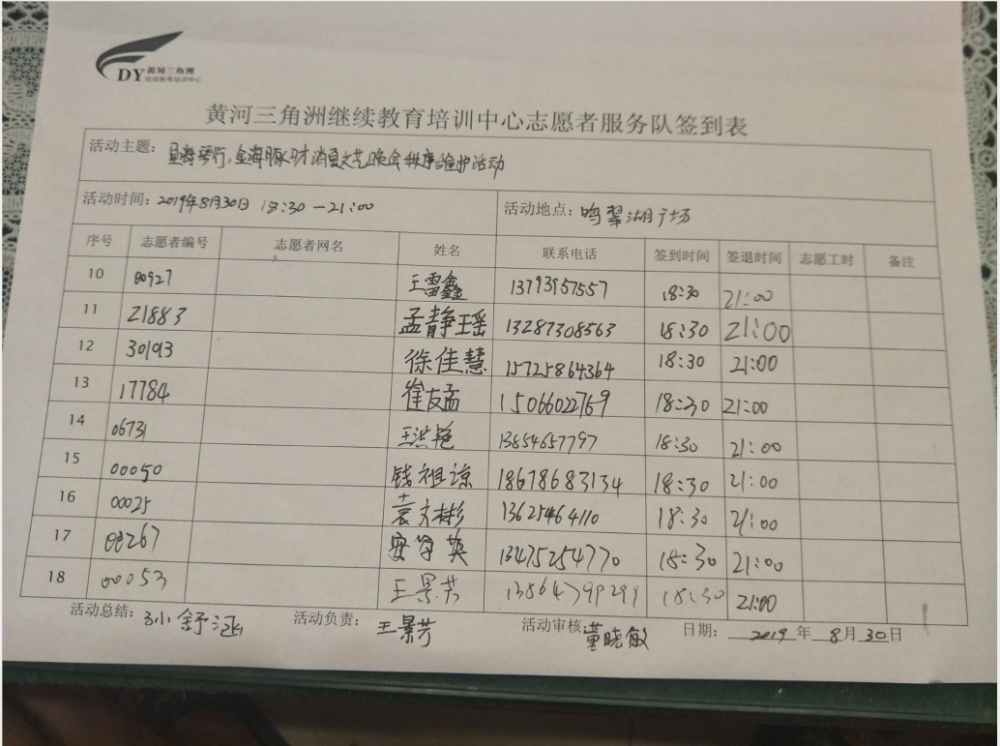 DY 黄河三角洲
继续教育培训中心
黄河三角洲继续教育培训中心志愿者服务队签到表
活动主题: 星海琴行,金海豚才消夏文艺晚会秩序维护活动
活动时间: 2019年8月30日 18:30-21:00 活动地点: 鸣翠湖广场
序号 志愿者编号 志愿者网名 姓名 联系电话 签到时间 签退时间 志愿工时 备注
10 00927 王雷鑫 13793957557 18:30 21:00
11 21883 孟静瑶 13287308563 18:30 21:00
12 30193 徐佳慧 15725864364 18:30 21:00
13 17784 崔友孟 15066022769 18:30 21:00
14 06731 王洪艳 13854657797 18:30 21:00
15 00050 钱祖谅 18678683134 18:30 21:00
16 00025 袁文彬 13625464110 18:30 21:00
17 03267 安学英 13475254770 18:30 21:00
18 00053 王景芳 13864799299 18:30 21:00
活动总结: 孙舒涵 活动负责: 王景芳 活动审核: 董晓敏 日期: 2019年8月30日